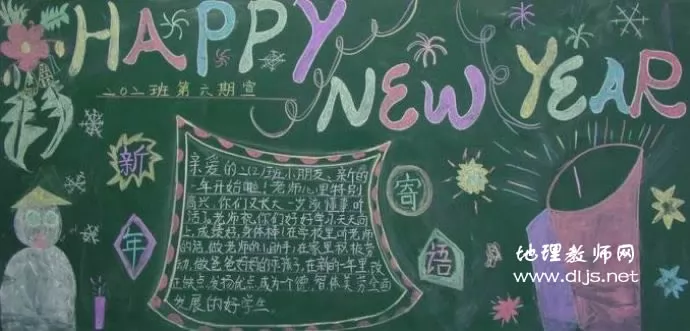 HAPPY
NEW YEAR
202班第六期宣
新年
寄语
亲爱的202班小朋友、新的
一年开始啦！老师心里特别
高兴，你们又大一岁
活了。老师祝你们好好学习天天向
上，成绩好，身体棒！在学校里听老师
的话，做老师的小助手；在家里积极劳
动，做爸爸妈妈的乖孩子，在新的一年里改
正缺点，发扬优点，成为一个德、智、体、美、劳全面
发展的好学生。
地理教师网
www.dljs.net